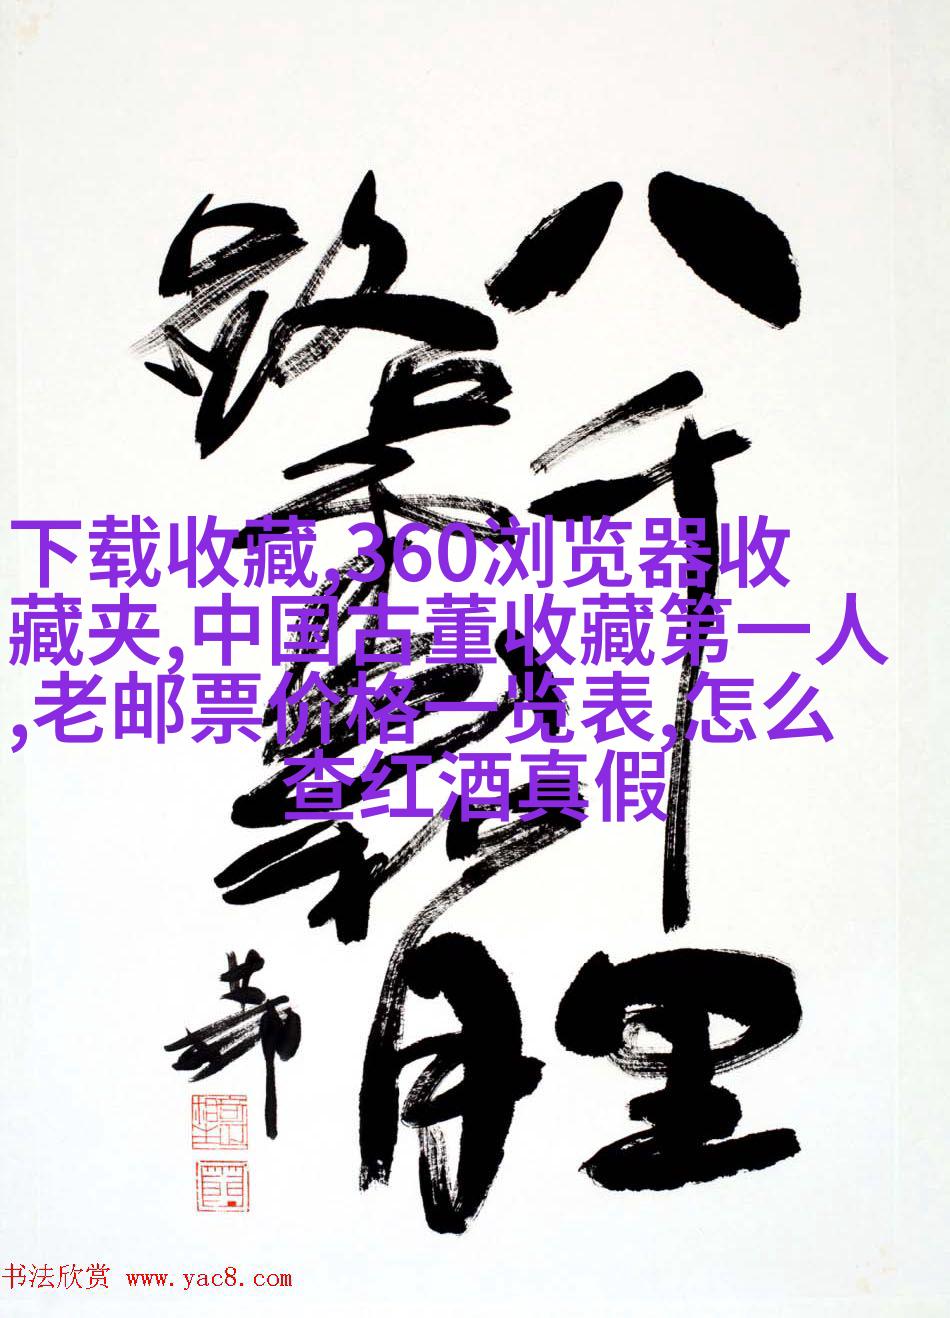 八千里
路雲和月
下载收藏,360浏览器收
藏夹,中国古董收藏第一人
,老邮票价格一览表,怎么
查红酒真假
书法欣赏 www.yac8.com